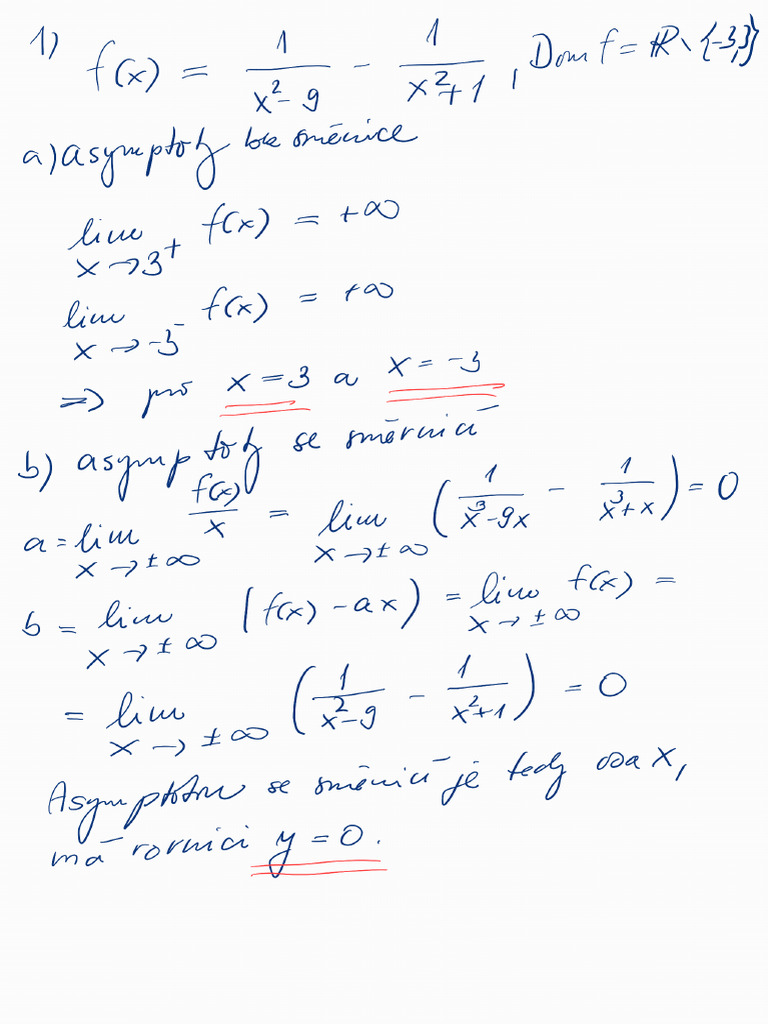 1) f(x) = 1/(x²-9) - 1/(x²+1), Dom f = ℝ \ {-3,3}
a) asymptoty bez směrnice
lim x→3⁺ f(x) = +∞
lim x→-3⁻ f(x) = +∞
⇒ pro x = 3 a x = -3
b) asymptoty se směrnicí
a = lim x→±∞ f(x)/x = lim x→±∞ (1/(x³-9x) - 1/(x³+x)) = 0
b = lim x→±∞ (f(x) - ax) = lim x→±∞ f(x) =
= lim x→±∞ (1/(x²-9) - 1/(x²+1)) = 0
Asymptotou se směrnicí je tedy osa x,
má rovnici y = 0.